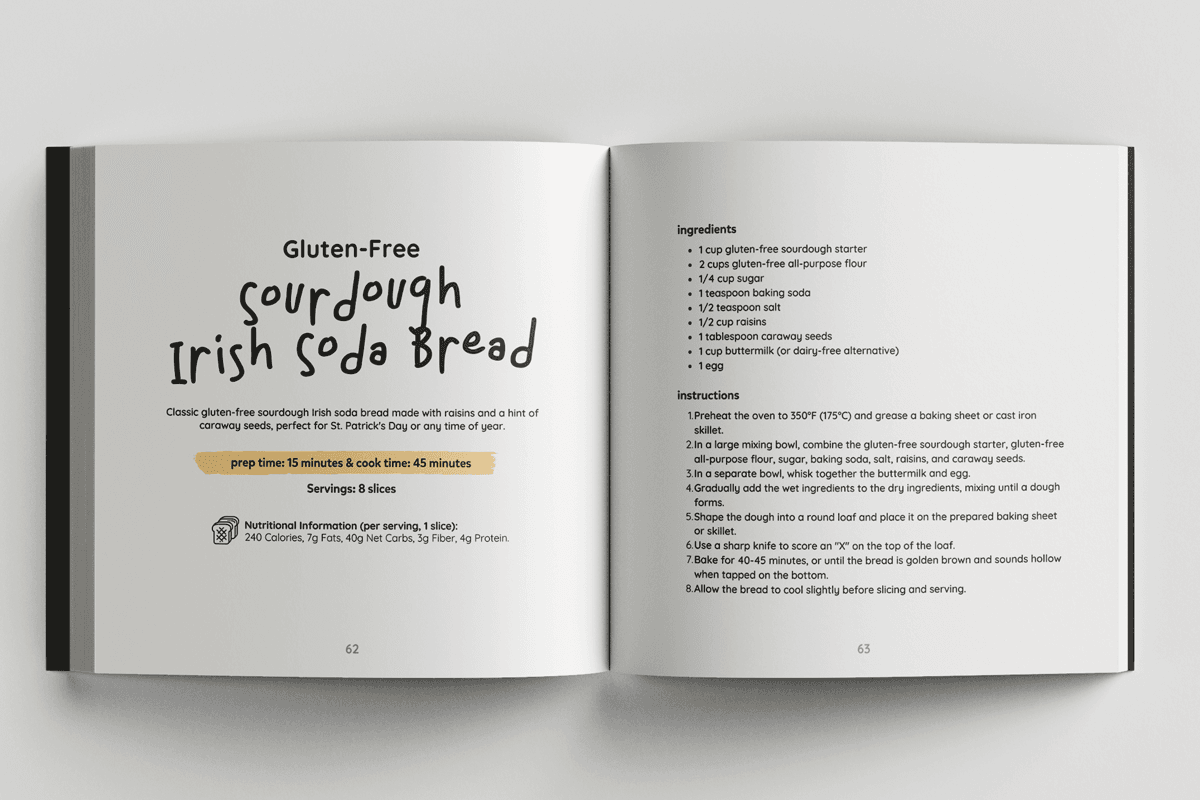 Gluten-Free
Sourdough
Irish Soda Bread
Classic gluten-free sourdough Irish soda bread made with raisins and a hint of
caraway seeds, perfect for St. Patrick's Day or any time of year.
prep time: 15 minutes & cook time: 45 minutes
Servings: 8 slices
Nutritional Information (per serving, 1 slice):
240 Calories, 7g Fats, 40g Net Carbs, 3g Fiber, 4g Protein.
62
ingredients
• 1 cup gluten-free sourdough starter
• 2 cups gluten-free all-purpose flour
• 1/4 cup sugar
• 1 teaspoon baking soda
• 1/2 teaspoon salt
• 1/2 cup raisins
• 1 tablespoon caraway seeds
• 1 cup buttermilk (or dairy-free alternative)
• 1 egg
instructions
1.Preheat the oven to 350°F (175°C) and grease a baking sheet or cast iron
skillet.
2.In a large mixing bowl, combine the gluten-free sourdough starter, gluten-free
all-purpose flour, sugar, baking soda, salt, raisins, and caraway seeds.
3.In a separate bowl, whisk together the buttermilk and egg.
4.Gradually add the wet ingredients to the dry ingredients, mixing until a dough
forms.
5.Shape the dough into a round loaf and place it on the prepared baking sheet
or skillet.
6.Use a sharp knife to score an "X" on the top of the loaf.
7.Bake for 40-45 minutes, or until the bread is golden brown and sounds hollow
when tapped on the bottom.
8.Allow the bread to cool slightly before slicing and serving.
63